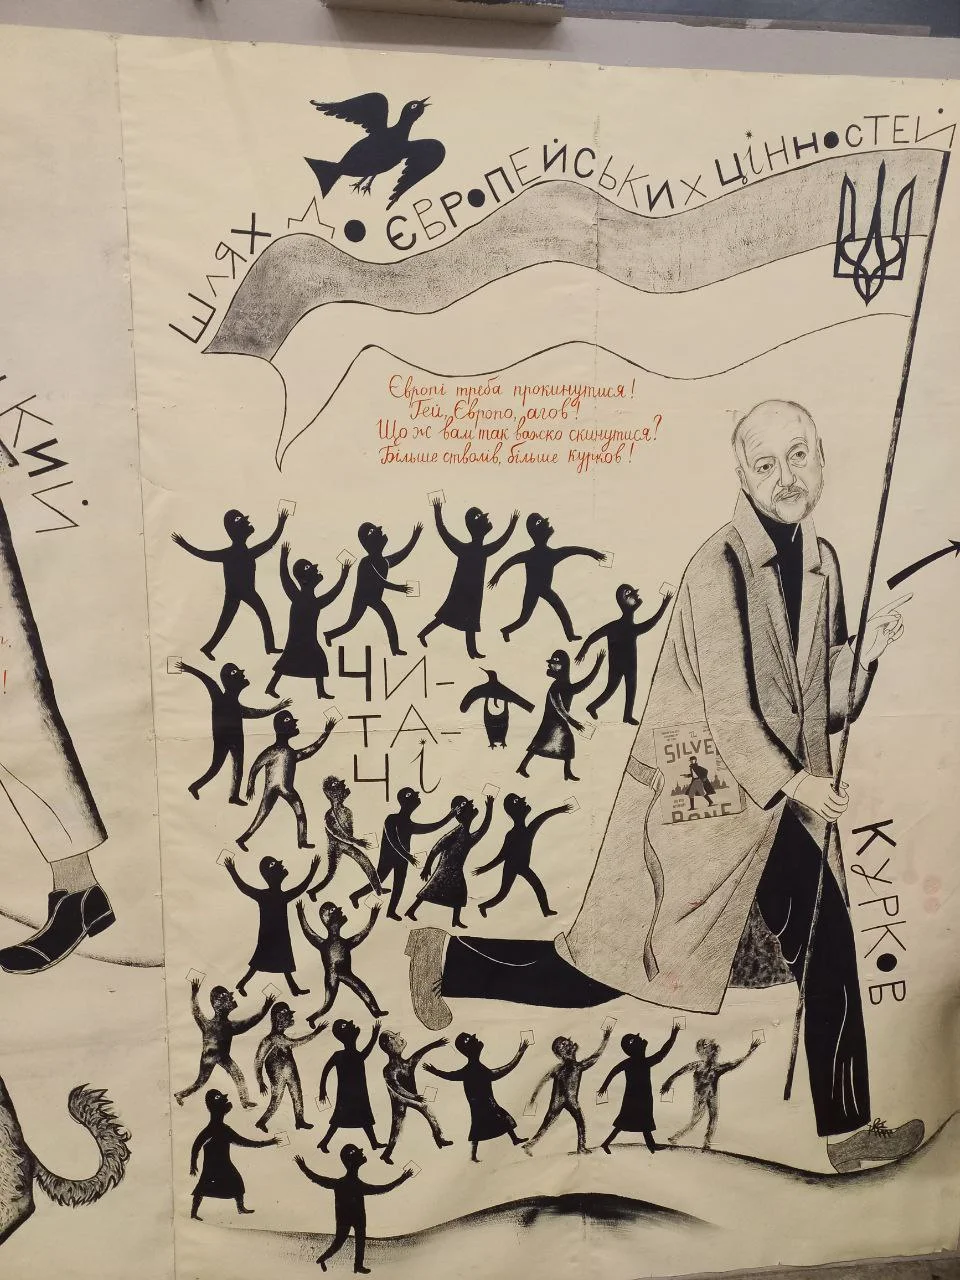 ШЛЯХ ДО ЄВРОПЕЙСЬКИХ ЦІННОСТЕЙ
Європі треба прокинутися!
Гей, Європо, агов!
Що ж вам так важко скинутися?
Більше стволів, більше курков!
ЧИ-
ТА-
ЧІ
SILVE
BONE
КУРКОВ
КИЙ